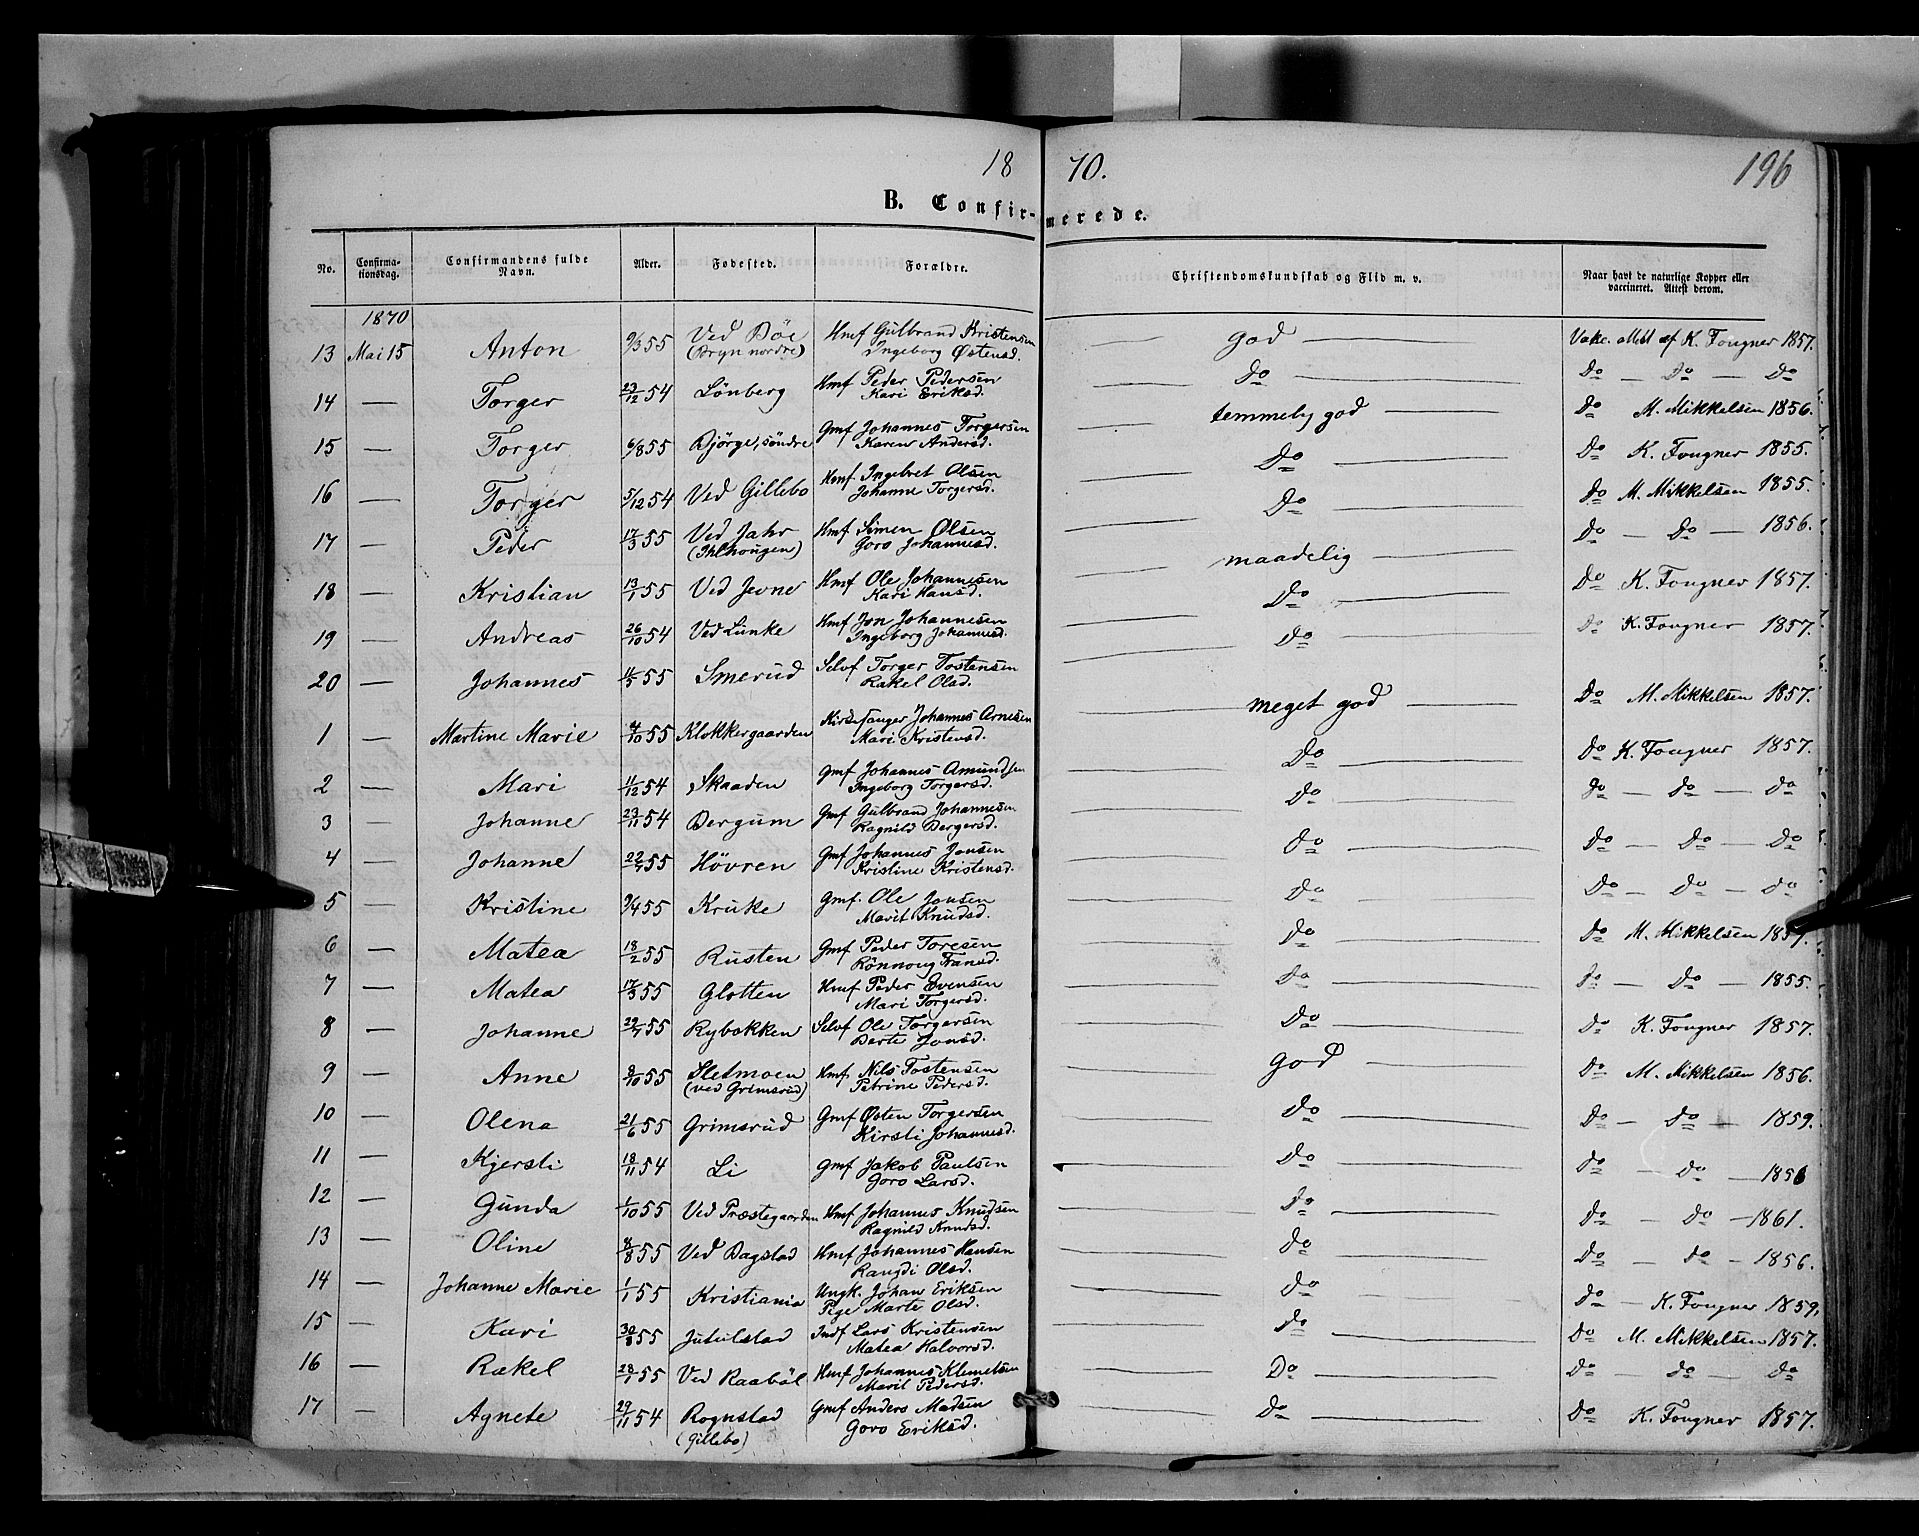 18 70.
196
B. Confir-merede.
No. Confirmationsdag. Confirmandens fulde Navn. Alder. Fødested. Forældre. Christendomskundskab og Flid m. v. Naar havt de naturlige Kopper eller vaccineret. Attest derom.
1870
13 Mai 15 Anton 9/3 55 Ved Böe (Bryn nordre) Hmf Gulbrand Kristensen Ingeborg Østensd. god Vakc. Att af K. Fougner 1857.
14 — Torger 23/12 54 Lönberg Hmf Peder Pedersen Kari Eriksd. Do Do — Do — Do
15 — Torger 6/8 55 Björge, söndre Gmf Johannes Torgersen Karen Andersd. temmelig god Do M. Mikkelsen 1856.
16 — Torger 5/12 54 Ved Gillebo Hmf. Ingebret Olsen Johanne Torgersd. Do Do K. Fougner 1855.
17 — Peder 17/3 55 Ved Jahr (Ihlhougen) Hmf Simen Olsen Goro Johannesd. Do Do M. Mikkelsen 1855.
18 — Kristian 13/1 55 Ved Jevne Hmf Ole Johannesen Kari Hansd. maadelig Do — Do — 1856.
19 — Andreas 26/10 54 Ved Lunke Hmf Jon Johannesen Ingeborg Johannesd. Do Do K. Fougner 1857.
20 — Johannes 11/5 55 Smerud Selvf Torger Tostensen Rakel Olsd. Do Do K. Fougner 1857.
1 — Martine Marie 4/10 55 Klokkergaarden Kirkesanger Johannes Arnesen Mari Kristensd. meget god Do M. Mikkelsen 1857.
2 — Mari 11/12 54 Skaaden Gmf Johannes Amundsen Ingeborg Torgersd. Do Do K. Fougner 1857.
3 — Johanne 23/11 54 Bergum Gmf Gulbrand Johannesen Ragnild Bergersd. Do Do — Do — Do
4 — Johanne 22/7 55 Hövren Gmf Johannes Jonsen Kristine Kristensd. Do Do — Do — Do
5 — Kristine 9/4 55 Kruke Gmf. Ole Jonsen Marit Knudsd. Do Do — Do — Do
6 — Matea 18/2 55 Rusten Gmf Peder Toresen Rönnoug Fransd. Do Do M. Mikkelsen 1857.
7 — Matea 17/3 55 Glotten Hmf Peder Evensen Mari Torgersd. Do Do — Do — 1855.
8 — Johanne 29/7 55 Rybakken Selvf Ole Torgersen Berte Jonsd. Do Do K. Fougner 1857.
9 — Anne 8/10 55 Sletmoen (ved Grimsrud) Hmf. Nils Tostensen Petrine Pedersd. god Do M. Mikkelsen 1856.
10 — Olena 21/6 55 Grimsrud Gmf Østen Torgersen Kirsti Johannesd. Do Do — Do — 1859.
11 — Kjersti 18/11 54 Li Gmf Jakob Paulsen Goro Larsd. Do Do — Do — 1856
12 — Gunda 1/10 55 Ved Præstegaarden Hmf Johannes Knudsen Ragnild Knudsd. Do Do — Do — 1861.
13 — Oline 8/8 55 Ved Bagstad Hmf Johannes Hansen Rangdi Olsd. Do Do — Do — 1856.
14 — Johanne Marie 1/1 55 Kristiania Ungk. Johan Eriksen Pige Marte Olsd. Do Do — K. Fougner 1859,
15 — Kari 30/8 55 Jutulstad Indf Lars Kristensen Matea Halvorsd. Do Do M. Mikkelsen 1857.
16 — Rakel 28/1 55 Ved Raaböl Hmf Johannes Klemetsen Marit Pedersd. Do Do — Do — Do
17 — Agnete 29/11 54 Rognstad (Gillebo) Gmf Anders Madsen Goro Eriksd. Do Do K. Fougner 1857.